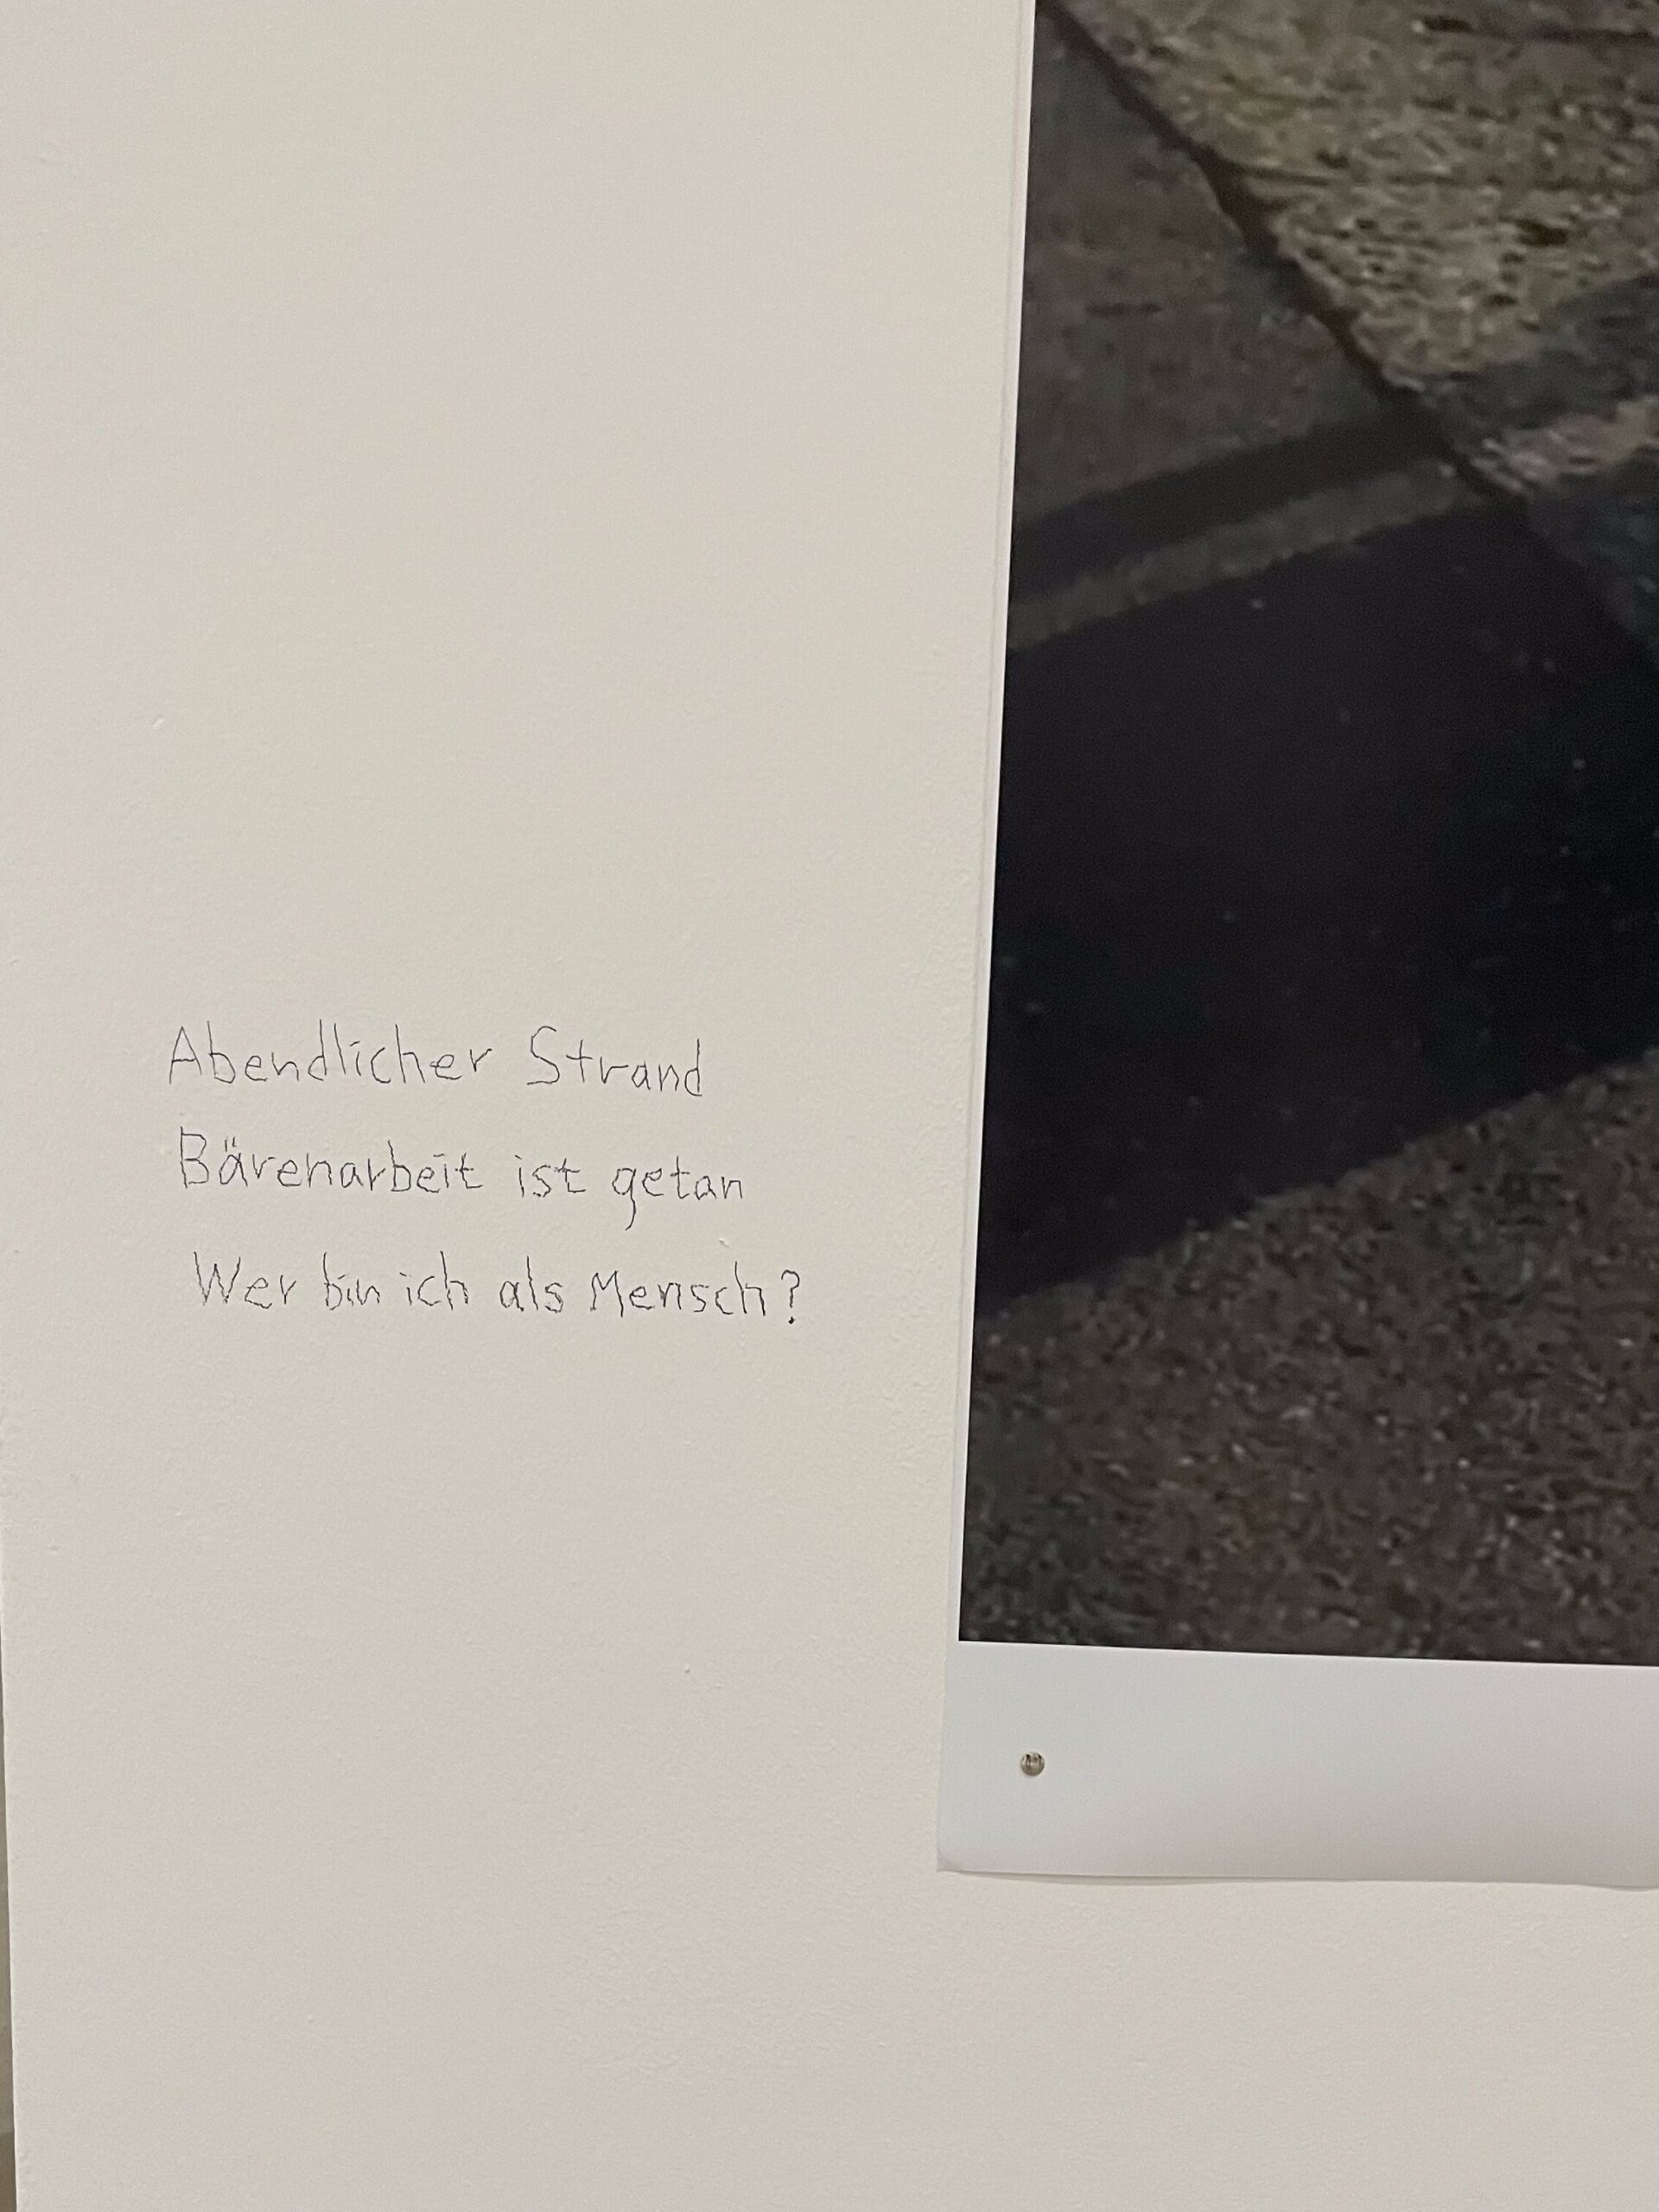 Abendlicher Strand
Bärenarbeit ist getan
Wer bin ich als Mensch?